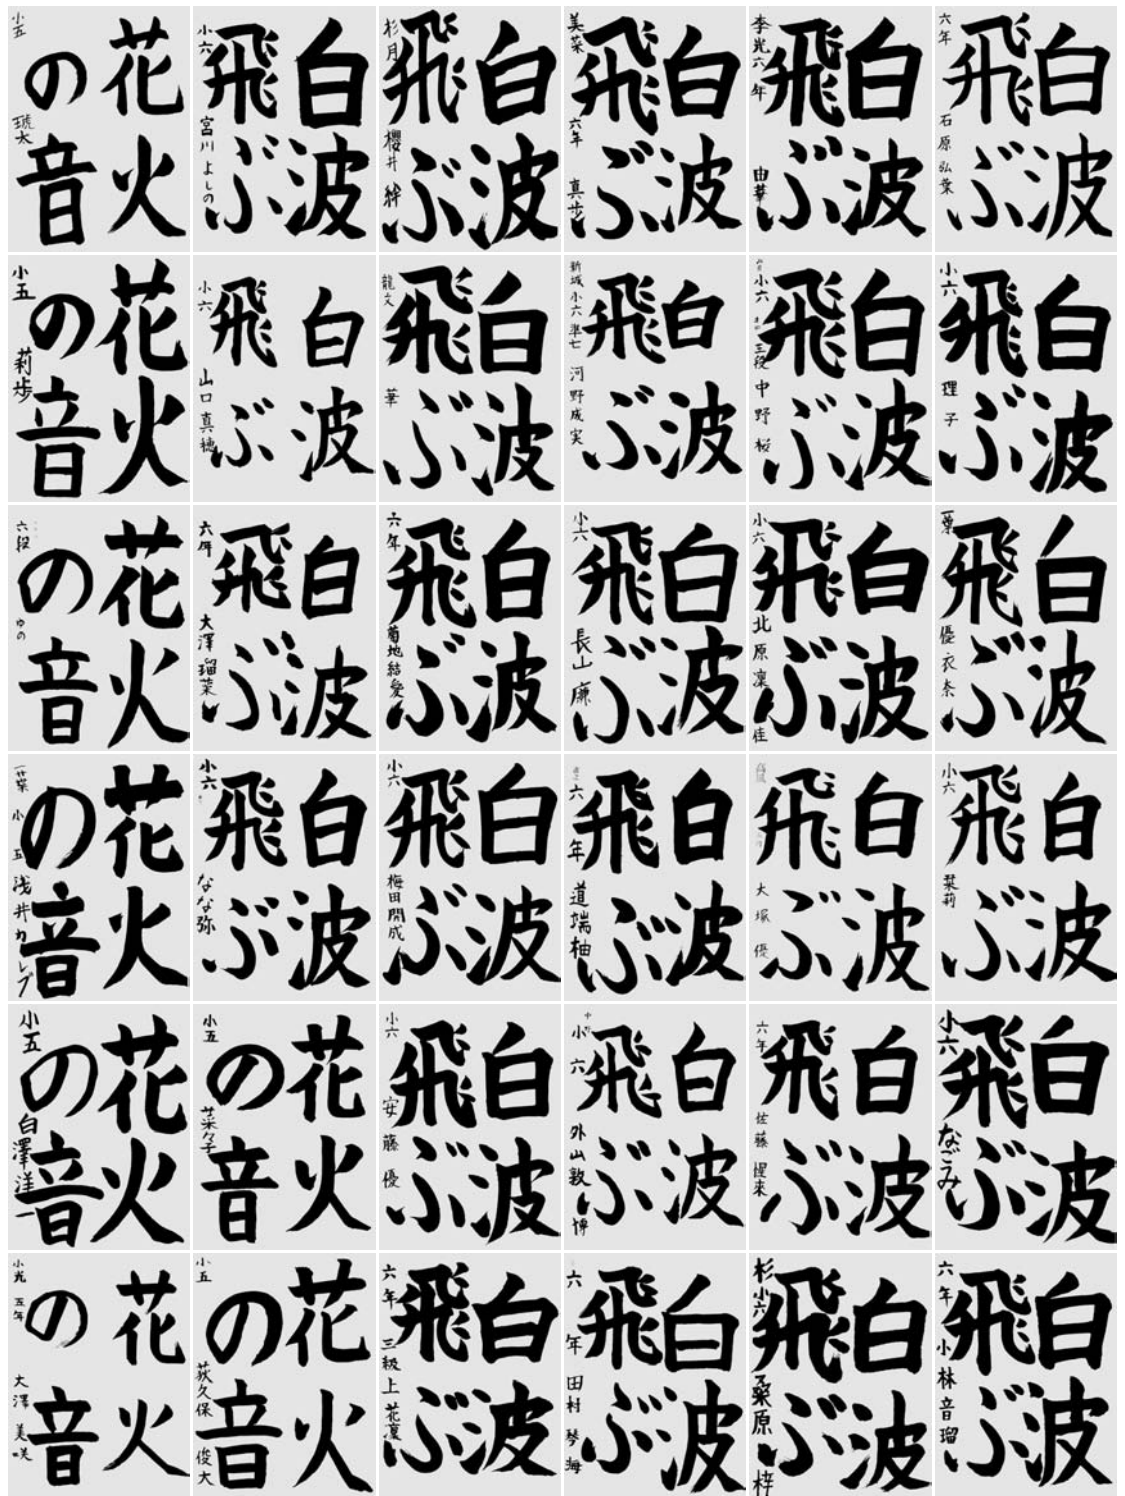 花火
の音
小五 琥太
白波
飛ぶ
小六 宮川よしの
白波
飛ぶ
杉月 櫻井絆
白波
飛ぶ
美菜 六年 真歩
白波
飛ぶ
李光 六年 由華
白波
飛ぶ
六年 石原弘葉
花火
の音
小五 莉歩
白波
飛ぶ
小六 山口真穂
白波
飛ぶ
龍文 華
白波
飛ぶ
新城 小六 準七 河野成実
白波
飛ぶ
小六 三段 中野桜
白波
飛ぶ
小六 理子
花火
の音
六段 ゆの
白波
飛ぶ
六年 大澤瑠菜
白波
飛ぶ
六年 菊地結愛
白波
飛ぶ
小六 長山廉
白波
飛ぶ
小六 北原凜佳
白波
飛ぶ
一葉 優衣奈
花火
の音
一葉 小五 浅井カレブ
白波
飛ぶ
小六 なな弥
白波
飛ぶ
小六 梅田開成
白波
飛ぶ
六年 道端柚
白波
飛ぶ
大塚優
白波
飛ぶ
小六 栞莉
花火
の音
小五 白澤洋一
花火
の音
小五 菜々子
白波
飛ぶ
小六 安藤優
白波
飛ぶ
小六 外山敦博
白波
飛ぶ
六年 佐藤惺来
白波
飛ぶ
小六 なごみ
花火
の音
小光 五年 大澤美咲
花火
の音
小五 荻久保俊大
白波
飛ぶ
六年 三級 上花凜
白波
飛ぶ
六年 田村琴海
白波
飛ぶ
杉 小六 桑原梓
白波
飛ぶ
六年 小林音瑠